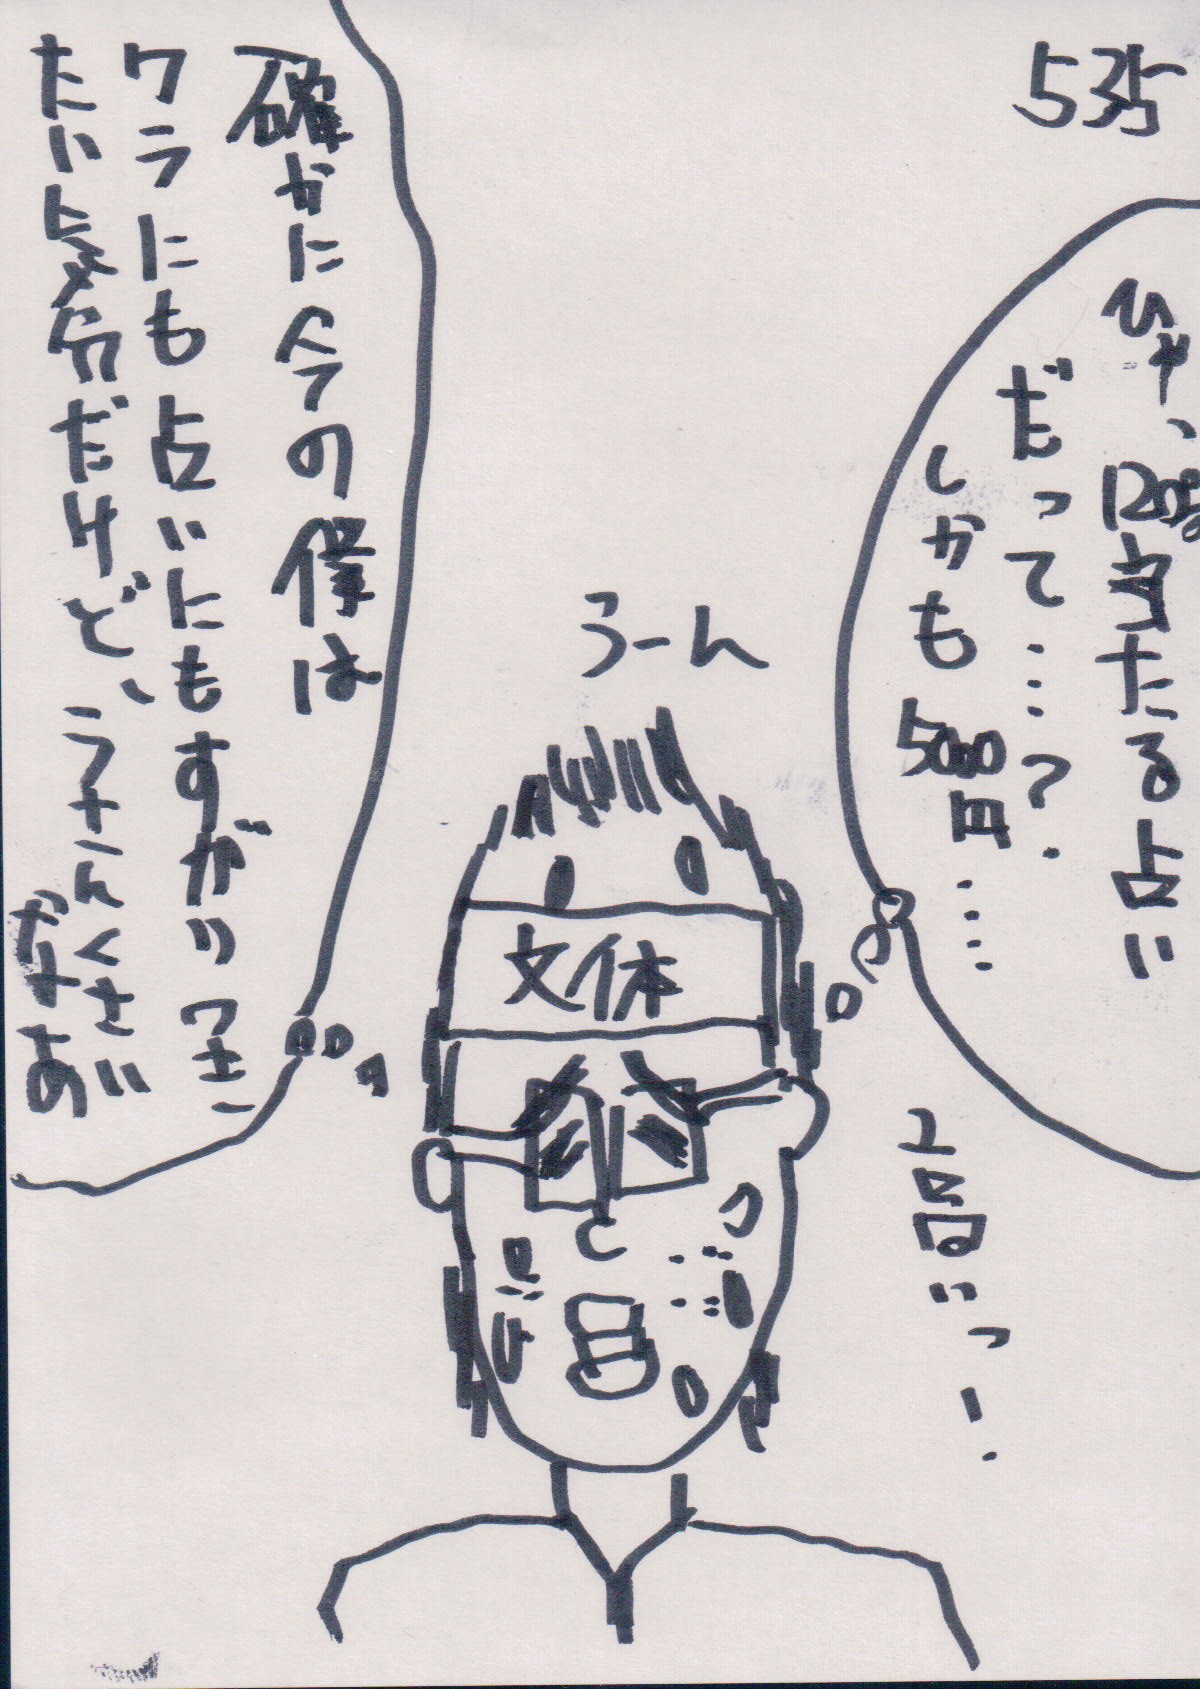 ひゃ、120%当たる占い
だって……?
しかも5000円……
うーん
文体
確かに今の僕は
ワラにも占いにもすがりつき
たい気分だけど、うさんくさい
だなあ